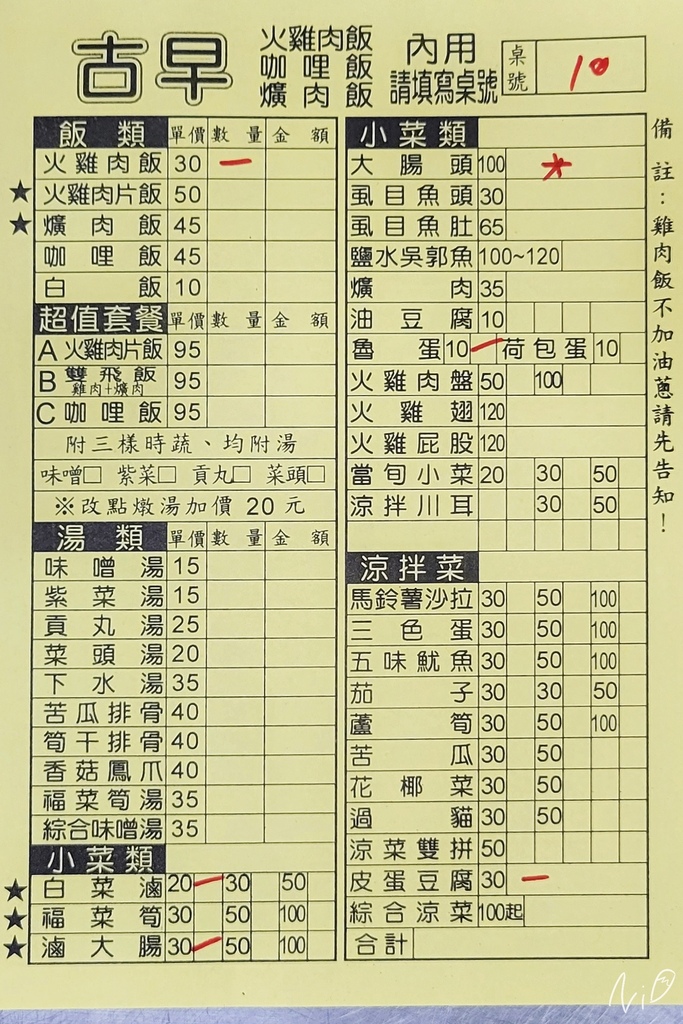 古早
火雞肉飯
咖哩飯
爌肉飯
內用
請填寫桌號
桌號 10
飯類 單價 數量 金額
火雞肉飯 30 一
★ 火雞肉片飯 50
★ 爌肉飯 45
咖哩飯 45
白飯 10
超值套餐 單價 數量 金額
A 火雞肉片飯 95
B 雙飛飯 雞肉+爌肉 95
C 咖哩飯 95
附三樣時蔬、均附湯
味噌□ 紫菜□ 貢丸□ 菜頭□
※改點燉湯加價 20 元
湯類 單價 數量 金額
味噌湯 15
紫菜湯 15
貢丸湯 25
菜頭湯 20
下水湯 35
苦瓜排骨 40
筍干排骨 40
香菇鳳爪 40
福菜筍湯 35
綜合味噌湯 35
小菜類
★ 白菜滷 20 一 30 50
★ 福菜筍 30 50 100
★ 滷大腸 30 一 50 100
小菜類
大腸頭 100
虱目魚頭 30
虱目魚肚 65
鹽水吳郭魚 100~120
爌肉 35
油豆腐 10
魯蛋 10 一 荷包蛋 10
火雞肉盤 50 100
火雞翅 120
火雞屁股 120
當旬小菜 20 30 50
涼拌川耳 30 50
涼拌菜
馬鈴薯沙拉 30 50 100
三色蛋 30 50 100
五味魷魚 30 50 100
茄子 30 30 50
蘆筍 30 50 100
苦瓜 30 50
花椰菜 30 50
過貓 30 50
涼菜雙拼 50
皮蛋豆腐 30 一
綜合涼菜 100起
合計
備註：雞肉飯不加油蔥請先告知！